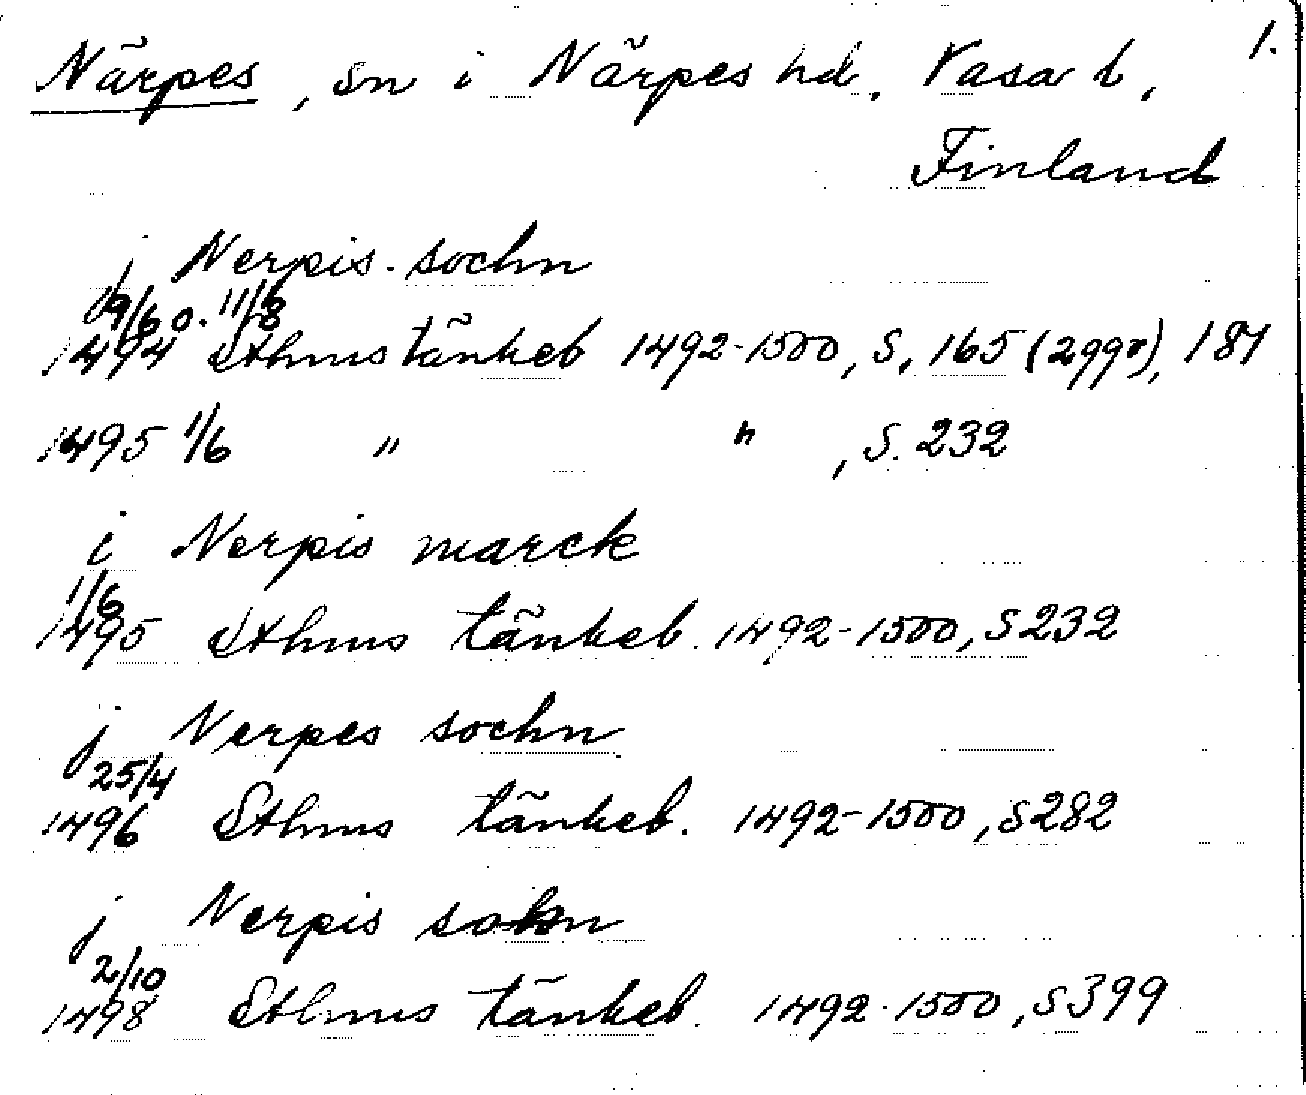 1.
Närpes, sn i Närpes hd. Vasa l,
Finland
j Nerpis sochn
19/6 o. 11/8
1494 Sthms tänkeb 1492-1500, S. 165 (299r), 187
1495 1/6 " " , S. 232
i Nerpis marck
1/6
1495 Sthms tänkeb. 1492-1500, S 232
j Nerpes sochn
25/4
1496 Sthms tänkeb. 1492-1500, S 282
j Nerpis sokn
2/10
1498 Sthms tänkeb. 1492-1500, S 399